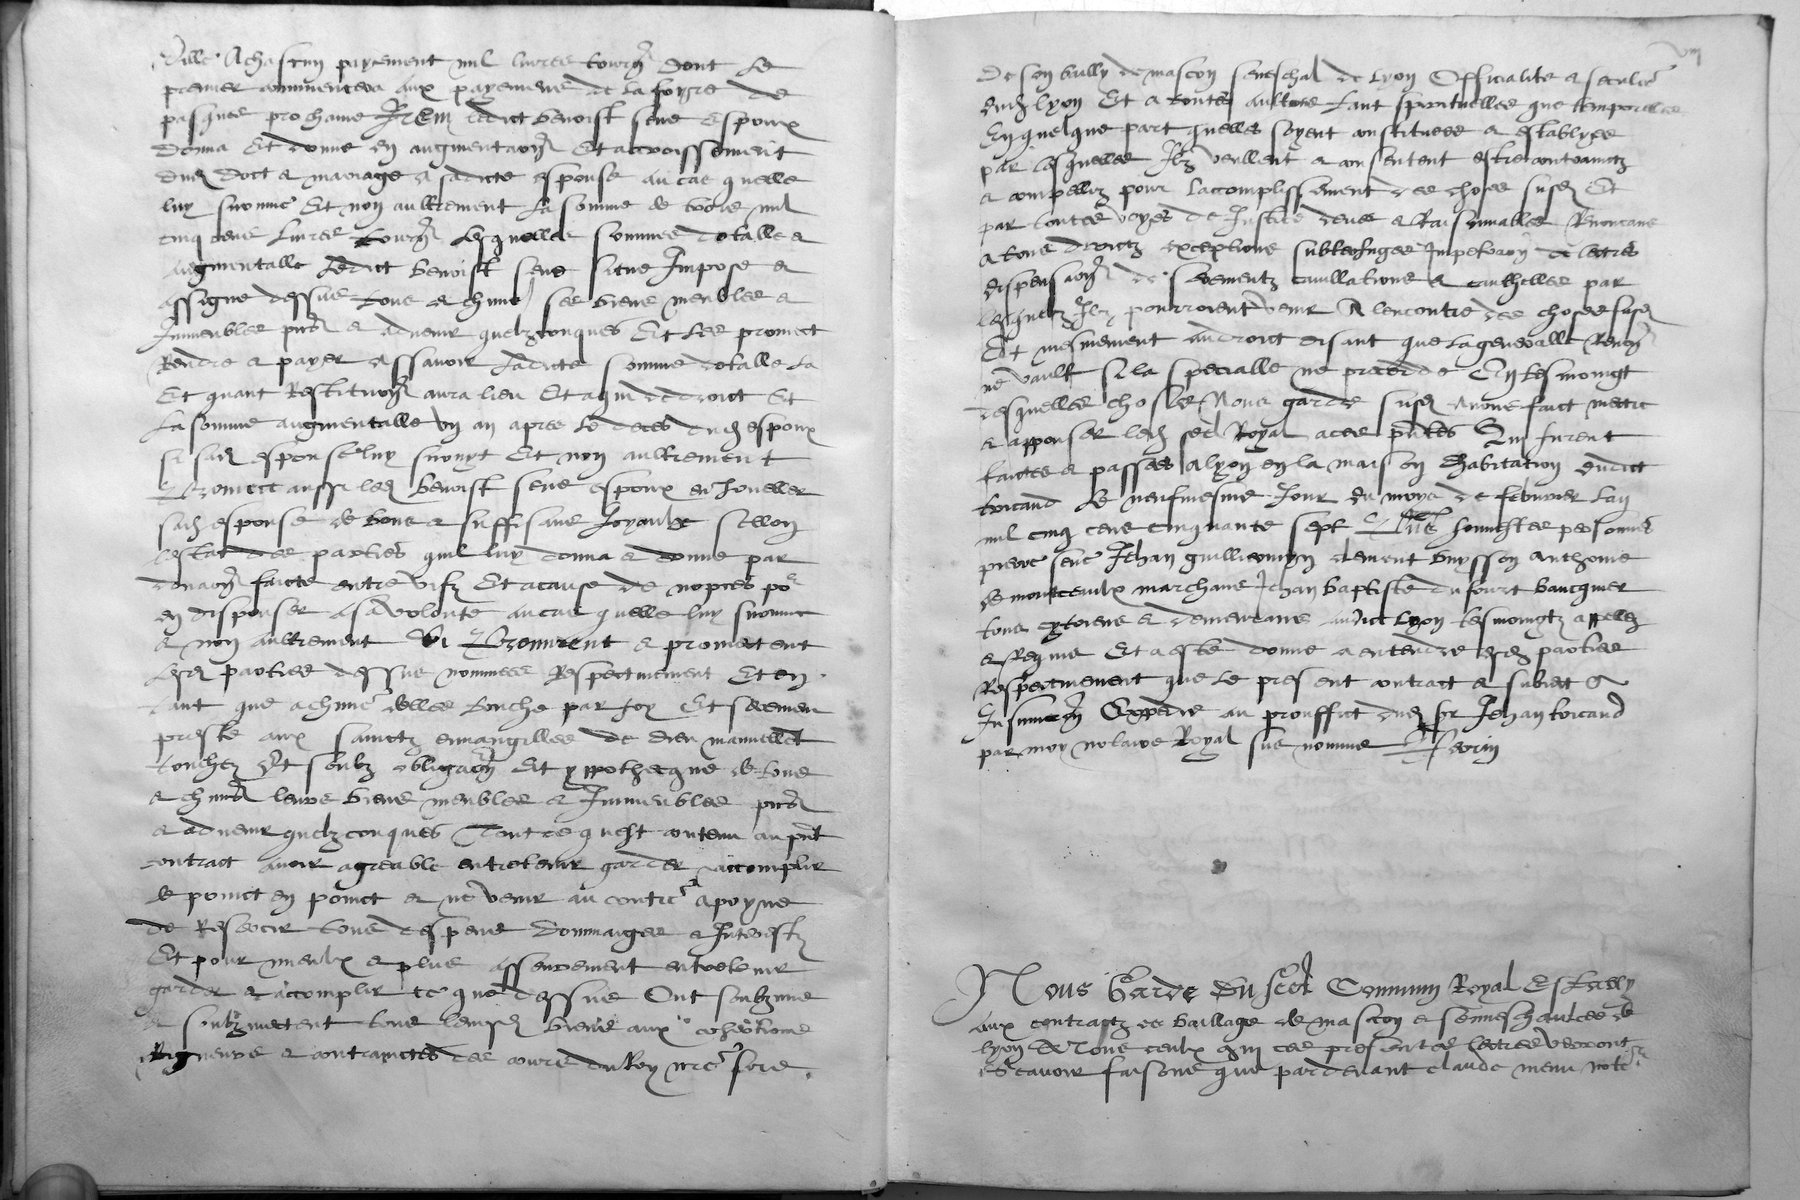 ville A chascun payement mil livres tourn dont le
premier commencera aux payemens de la foyre de
pasques prochaine Item ledict benoist seve espoux
donna Et donne en augmentaon Et accroissement
dud doct & mariage a sadicte espouse au cas quelle
luy survive Et non aultrement la somme de troys mil
cinq cens livres tourn Lesquelles sommes dotalle &
augmentalle ledict benoist seve situe Impose &
assigne dessus tous & chunc ses biens meubles &
Immeubles pns & advenir quelzconques Et les promect
Rendre & payer assavoir ladicte somme dotalle la
Et quant Restituon aura lieu Et a qui de droict Et
la somme augmentalle ung an apres le deces dud espoux
si sad espouse luy survyt Et non aultrement
Promect aussi led benoist seve espoux enJoueller
sad espouse de bons & suffisans Joyaulx selon
lestat des parties quil luy donna & donne par
donaon faicte entre vifz Et a cause de nopces po
en disposer a sa volonte au cas quelle luy survive
& non aultrement Promirent & promectent
lesd parties dessus nommees Respectivement Et en
tant que a chune delles touche par foy Et serement
preste aux sainctz euvangilles de dieu manuellet
touchez Et soubz obligaon Et yppothecque de tous
& chuns leurs biens meubles & Immeubles pns
& advenir quelzconques Tout ce quest contenu au pnt
contract avoir agreable entretenir garder accomplir
de poinct en poinct & ne venir au contre a poyne
de Reffaire tous despens dommaiges & Interestz
Et pour mieulx & plus asseurement entretenir
garder & acomplir ce que dessus Ont soubzmis
& soubzmectent tous leursd biens aux cohertions
Rigueurs & contrainctes des cours du Roy nre sire
De son bailly de mascon seneschal de lyon Officialite & seculre
dud lyon Et a toutes aultres tant spirituelles que temporelles
En quelque part quelles soyent constituees & establyes
par lesquelles Ilz veullent & consentent estre contrainctz
& compellez pour laccomplissement des choses susd Et
par toutes voyes de Justice deues & Raisonnables Renoncans
a tous droictz exceptions subterfuges Impetraon de lectres
dispensaon de serementz cavillations & cauthelles par
lesquelz Ilz pourroient venir A lencontre des choses susd
Et mesmement au droict disant que la generalle Renon
ne vault si la specialle ne precedde En tesmoingt
desquelles choses Nous garde susd avons faict mectre
& apposer led seel Royal a ces pntes Qui furent
faictes & passees a lyon en la maison dhabitation dudict
tricaud Le neufviesme Jour du moys de febvrier lan
mil cinq cens cinquante sept honnestes personnes
pierre seve Jehan guilliaumyn clement buysson Anthonie
de montceaulx marchans Jehan baptiste dufourt bancquier
tous cytoiens & demeurans audict lyon tesmoingtz appellez
& Requis Et a este donne a entendre esd parties
Respectivement que le present contract est subiect a
Insinuaon Expedie au prouffict dud sr Jehan tricaud
par moy notaire Royal sus nomme
Nous Garde du seel Commun Royal Estably
aux contractz es bailliage de mascon & seneschaulcee de
lyon A Tous ceulx qui ces presentes lectres verront
Scavoir faisons que pardevant claude menu note